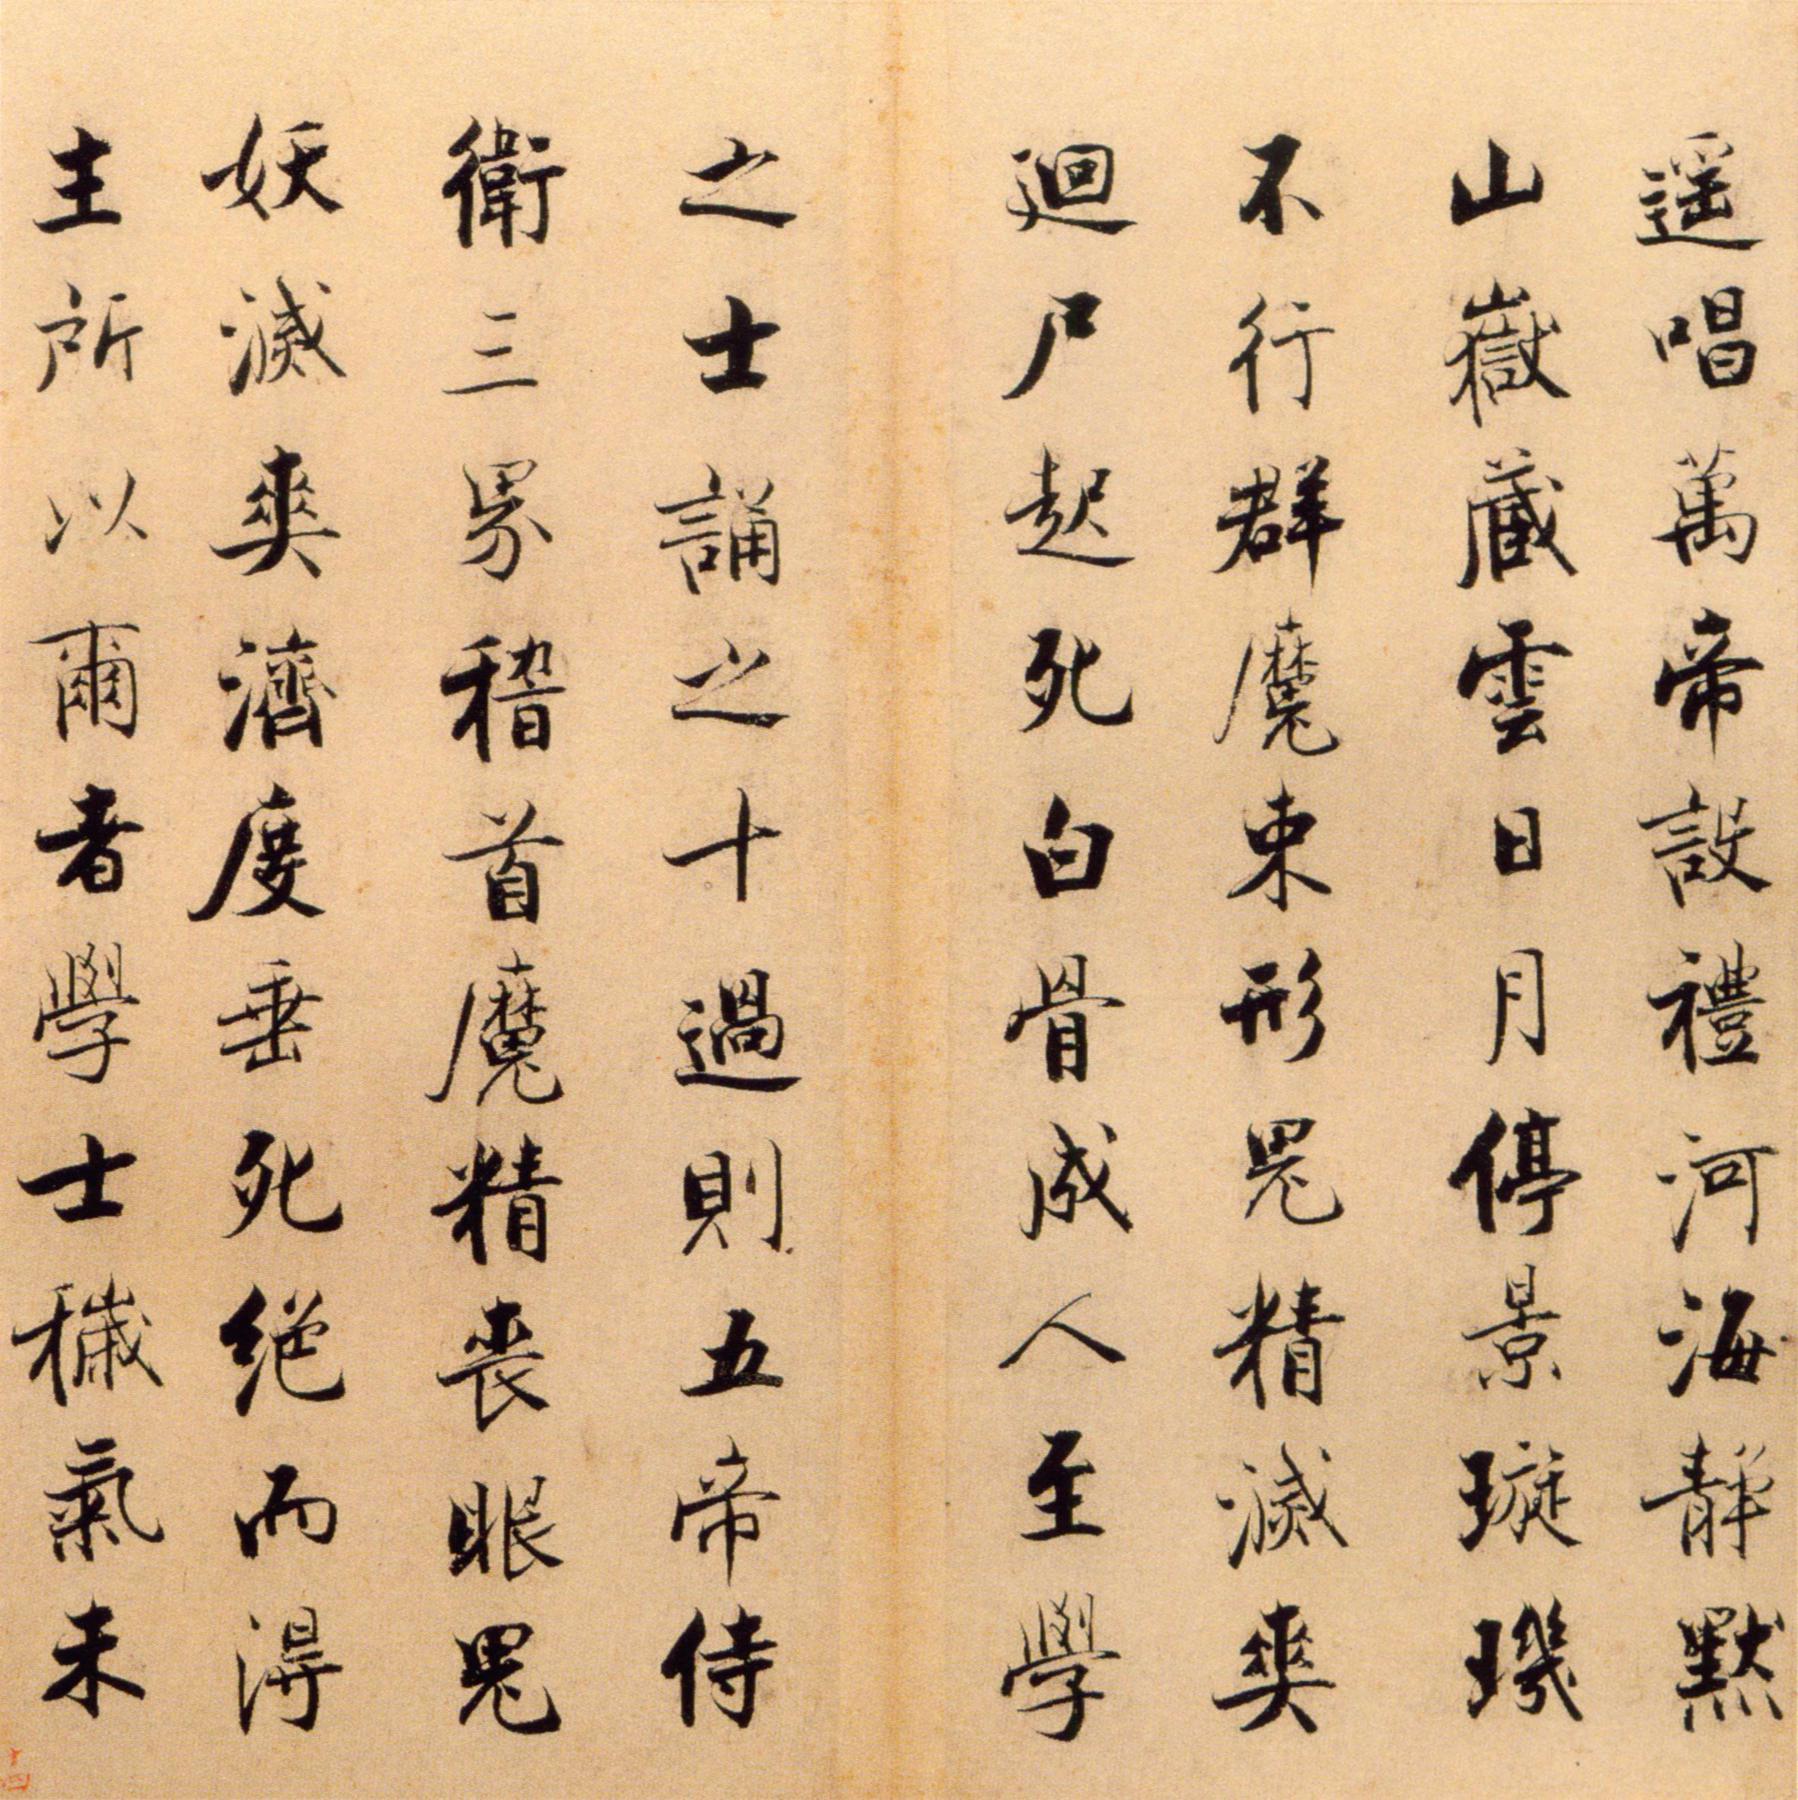 遥唱萬帝設禮河海靜默
山嶽藏雲日月停景璇璣
不行群魔束形鬼精滅爽
迴尸起死白骨成人至學
之士誦之十過則五帝侍
衛三界稽首魔精喪眼鬼
妖滅爽濟度垂死絕而得
主所以爾者學士穢氣未
十四